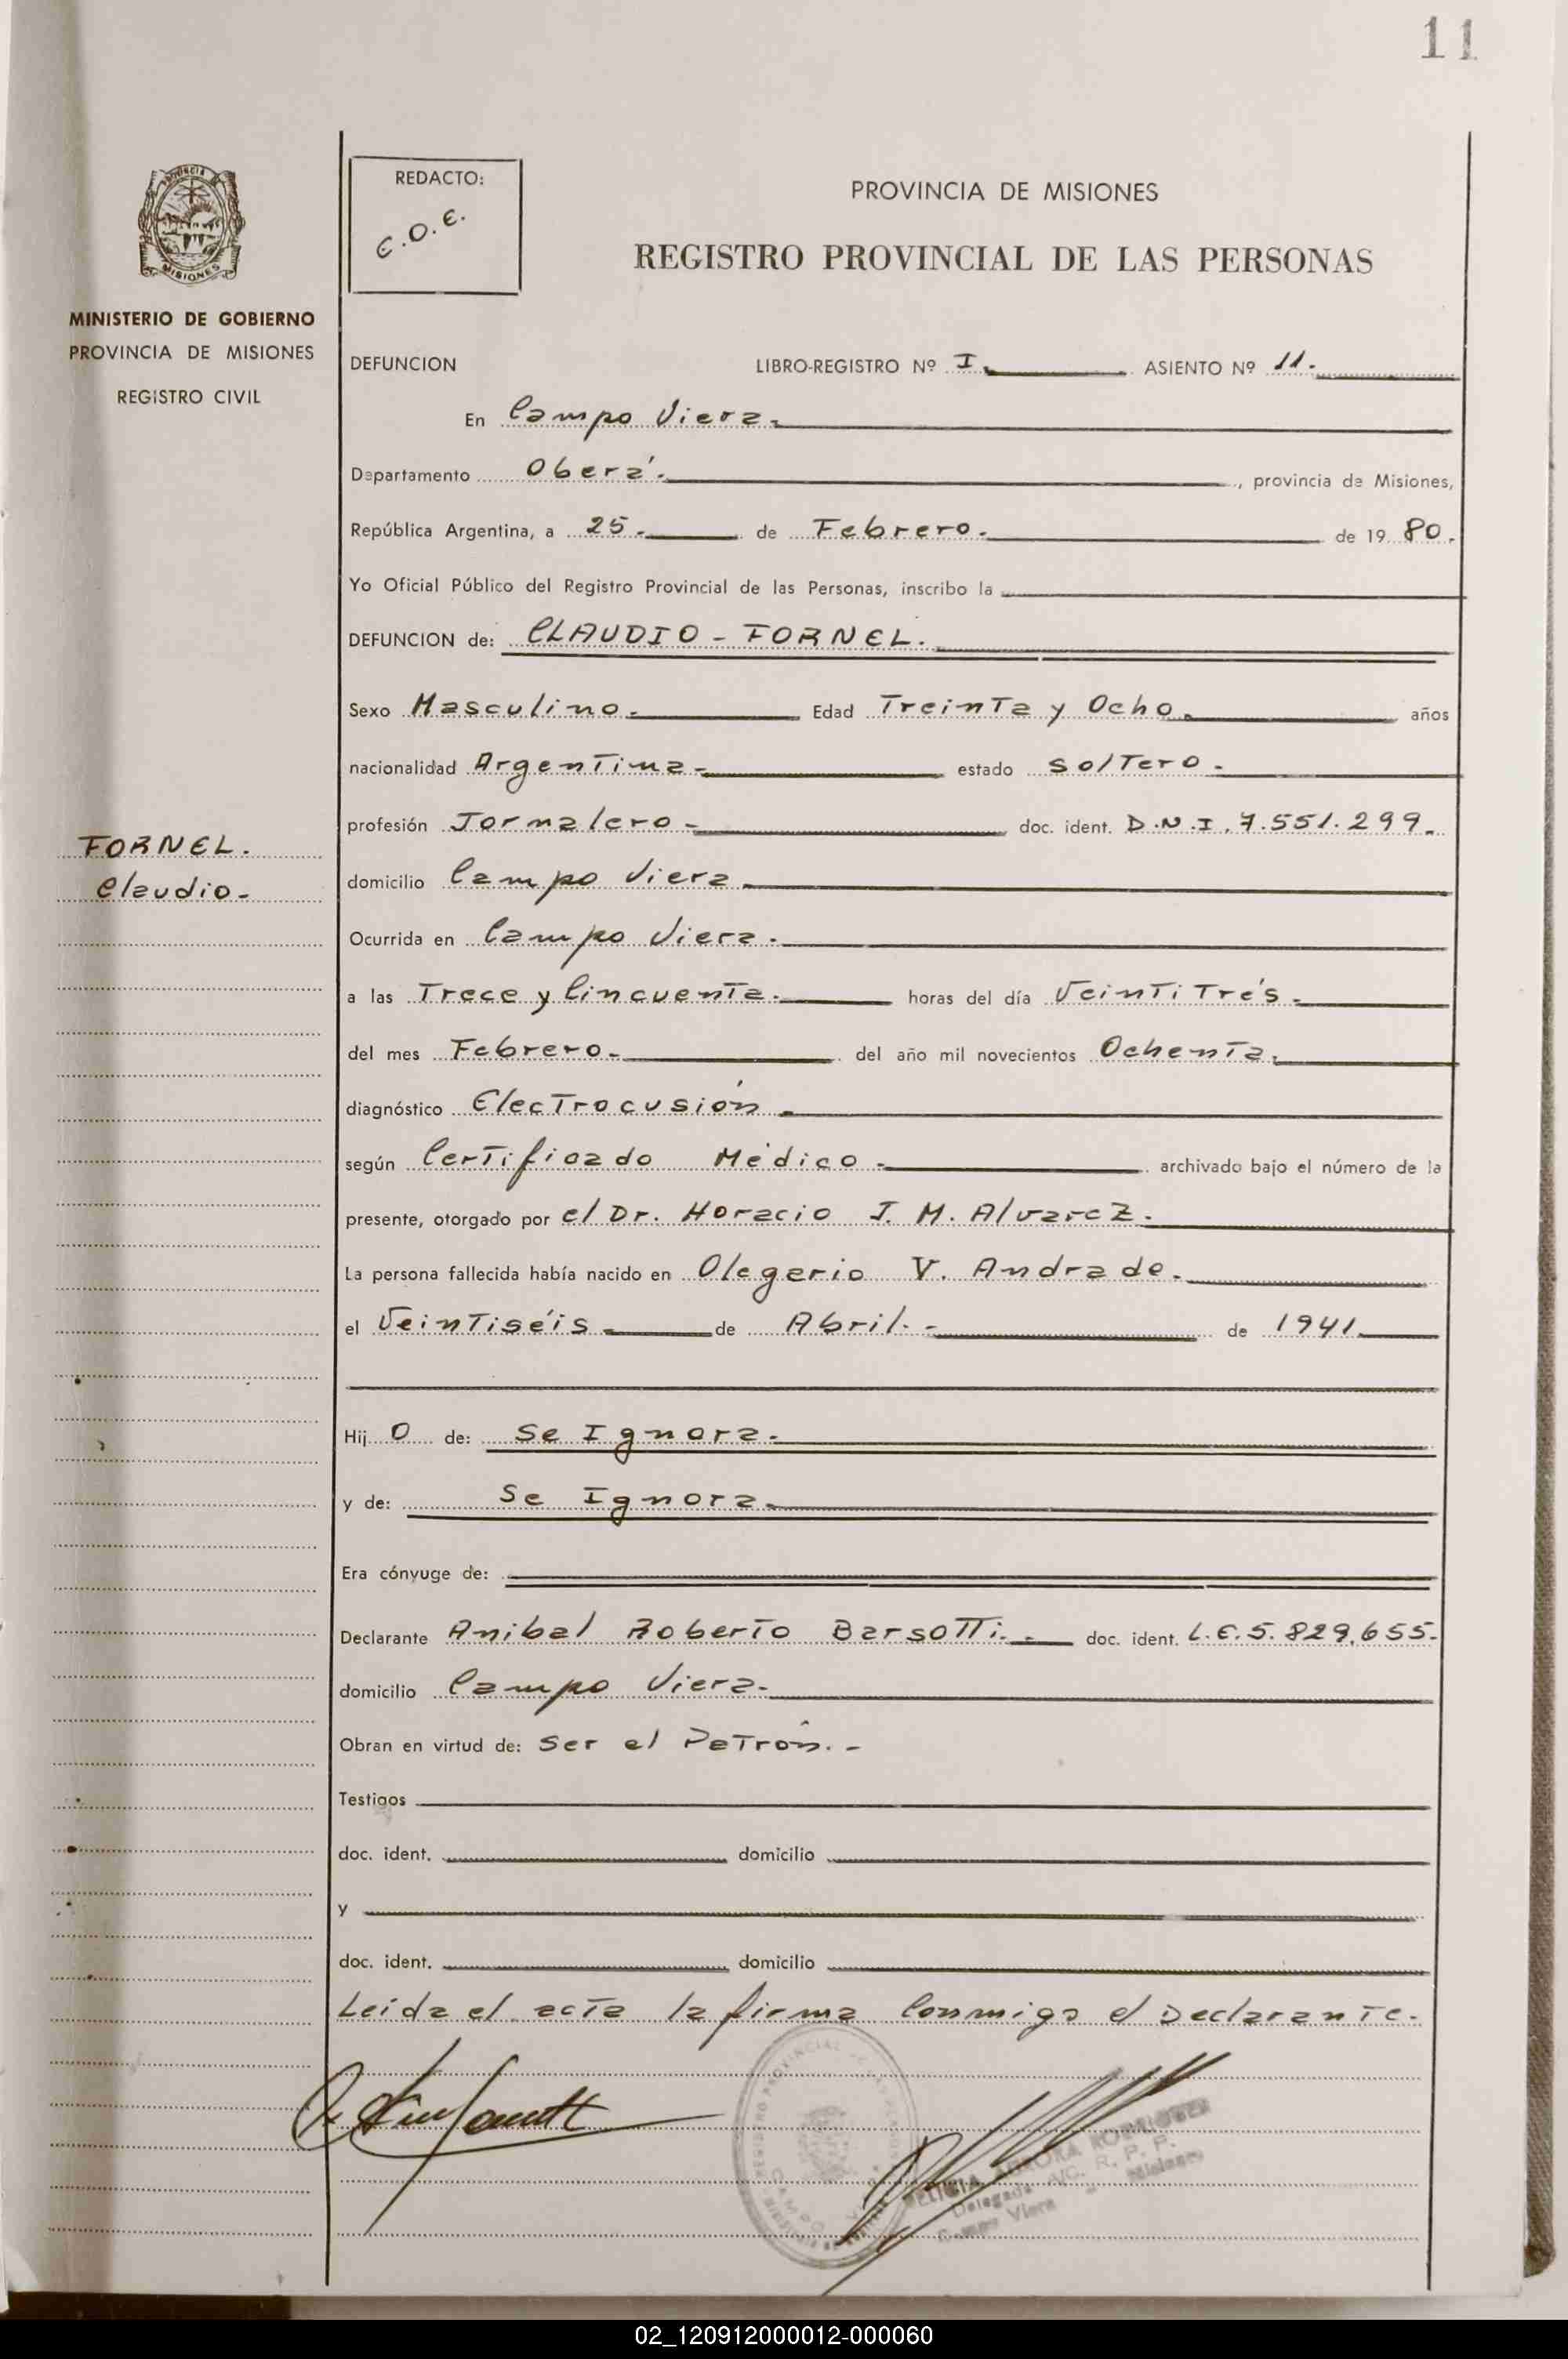 11
REDACTO:
C.O.E.
PROVINCIA DE MISIONES
REGISTRO PROVINCIAL DE LAS PERSONAS
MISIONES
MINISTERIO DE GOBIERNO
PROVINCIA DE MISIONES
REGISTRO CIVIL
DEFUNCION LIBRO-REGISTRO Nº I. ASIENTO Nº 11.
En Campo Viera.
Departamento Oberá. , provincia de Misiones,
República Argentina, a 25. de Febrero. de 19 80.
Yo Oficial Público del Registro Provincial de las Personas, inscribo la
DEFUNCION de: CLAUDIO - FORNEL.
Sexo Masculino. Edad Treinta y Ocho. años
nacionalidad Argentina- estado Soltero.
profesión Jornalero- doc. ident. D.N.I. 7.551.299.
FORNEL.
Claudio-
domicilio Campo Viera
Ocurrida en Campo Viera.
a las Trece y Cincuenta. horas del día Veinti Trés.
del mes Febrero. del año mil novecientos Ochenta.
diagnóstico Electrocusión.
según Certificado Médico. archivado bajo el número de la
presente, otorgado por el Dr. Horacio J. M. Alvarez.
La persona fallecida había nacido en Olegario V. Andrade.
el Veintiséis de Abril.- de 1941
Hij O de: Se Ignora.
y de: Se Ignora.
Era cónyuge de:
Declarante Anibal Roberto Barsotti.- doc. ident. L.E. 5.829.655.
domicilio Campo Viera.
Obran en virtud de: Ser el Patrón.-
Testigos
doc. ident. domicilio
y
doc. ident. domicilio
Leída el acta la firma Conmigo el Declarante.
REGISTRO PROVINCIAL DE LAS PERSONAS
AURORA
Delegada A/C. R. P. P.
Campo Viera - Misiones
02_120912000012-000060